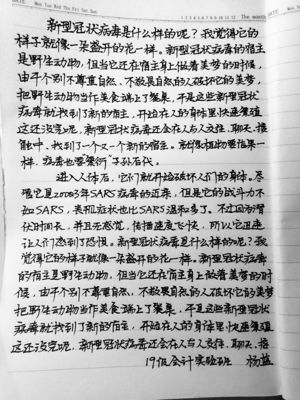 新型冠状病毒是什么样的呢？我觉得它的
样子就像一朵盛开的花一样。新型冠状病毒的宿主
是野生动物，但当它还在宿主身上做着美梦的时候，
由于个别不尊重自然、不敬畏自然的人破坏它的美梦，
把野生动物当作美食端上了餐桌，于是这些新型冠状
病毒就找到了新的宿主，开始在人的身体里快速繁殖
这还没完呢，新型冠状病毒还会在人与人交往、聊天、接
触中，找到了一个又一个新的宿主。就像植物要结果一
样，病毒也要繁衍子孙后代。
进入人体后，它们就开始破坏人们的身体。尽
管它是2003年SARS病毒的近亲，但是它的战斗力不
如SARS，表现症状也比SARS温和多了。不过因为潜
伏时间长，并且无感觉，传播速度飞快，所以它迅速
让人们感到了恐慌。新型冠状病毒是什么样的呢？我
觉得它的样子就像一朵盛开的花一样。新型冠状病毒
的宿主是野生动物，但当它还在宿主身上做着美梦的时
候，由于个别不尊重自然、不敬畏自然的人破坏它的美梦
把野生动物当作美食端上了餐桌，于是这些新型冠状
病毒就找到了新的宿主，开始在人的身体里快速繁殖
这还没完呢，新型冠状病毒还会在人与人交往、聊天、接
19级会计实验班 杨蓝